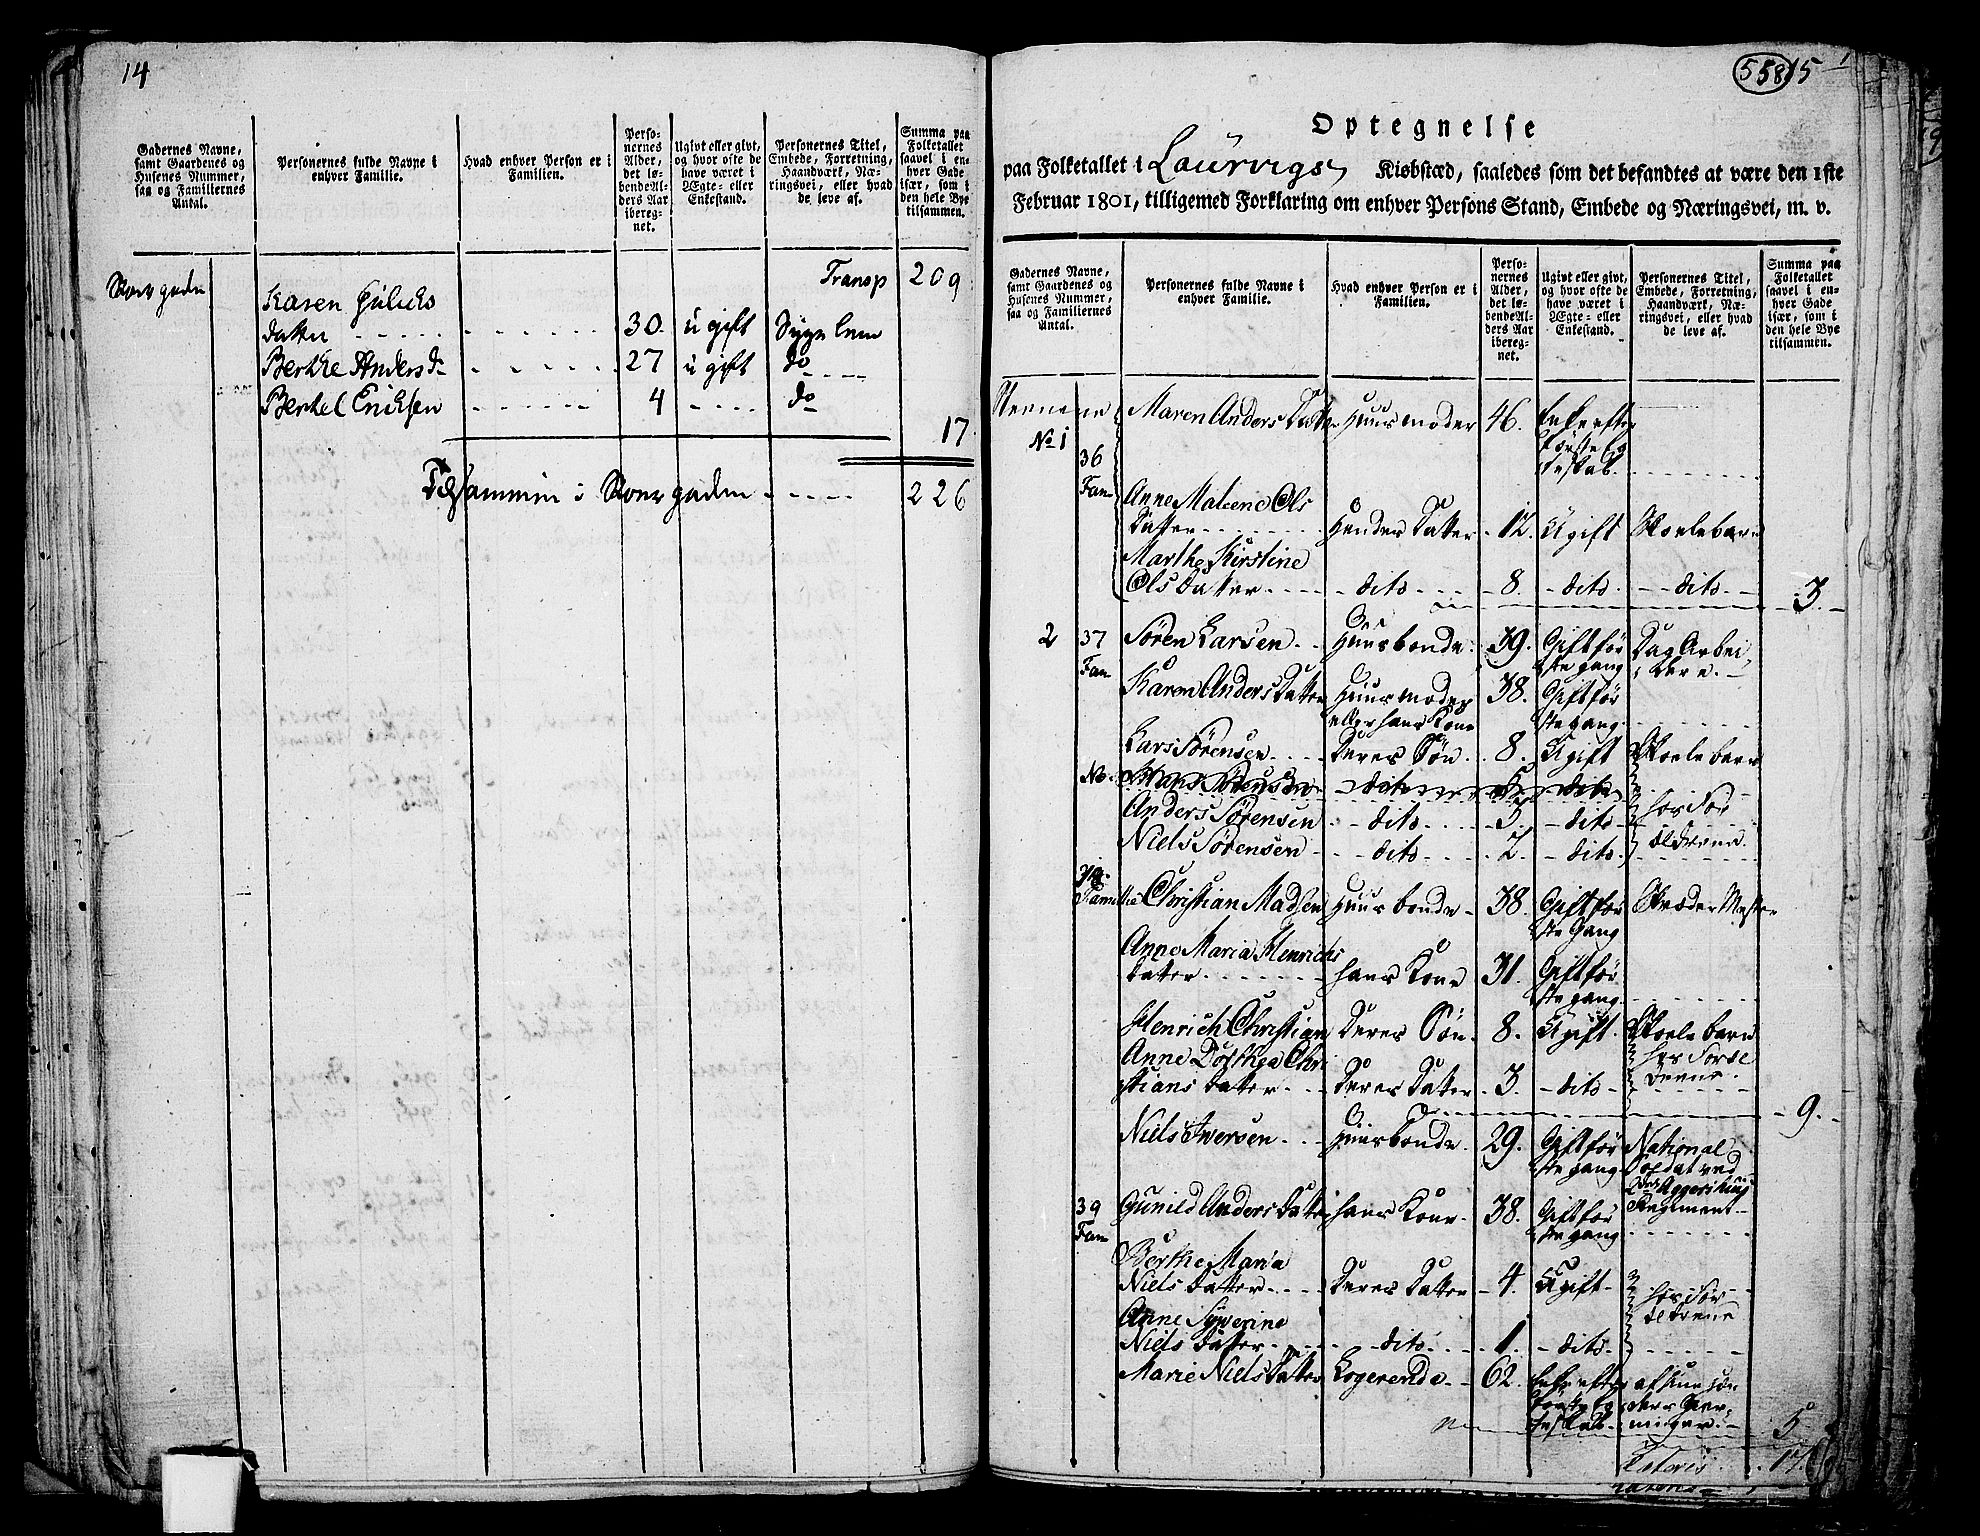 14
Gadernes Navne,
samt Gaardenes og
Husenes Nummer,
saa og Familiernes
Antal.
Personernes fulde Navne i
enhver Familie.
Hvad enhver Person er i
Familien.
Perso-
nernes
Alder,
det lø-
bende Al-
ders Aar
ibereg-
net.
Ugivt eller givt,
og hvor ofte de
have været i
Ægte- eller
Enkestand.
Personernes Titel,
Embede, Forretning,
Haandværk, Næ-
ringsvei, eller hvad
de leve af.
Summa paa
Folketallet
saavel i en-
hver Gade
især, som i
den hele Bye
tilsammen.
Transp 209
Karen
datter 30 ugift
Berthe Anders d- 27 ugift do
Berthel Erichsen 4 do
17
Tilsammen i 226
558 15
Optegnelse
paa Folketallet i Laurvigs Kiøbstæd, saaledes som det befandtes at være den 1ste
Februar 1801, tilligemed Forklaring om enhver Persons Stand, Embede og Næringsvei, m. v.
Gadernes Navne,
samt Gaardenes og
Husenes Nummer,
saa og Familiernes
Antal.
Personernes fulde Navne i
enhver Familie.
Hvad enhver Person er i
Familien.
Perso-
nernes
Alder,
det lø-
bende Al-
ders Aar
ibereg-
net.
Ugivt eller givt,
og hvor ofte de
have været i
Ægte- eller
Enkestand.
Personernes Titel,
Embede, Forretning,
Haandværk, Næ-
ringsvei, eller hvad
de leve af.
Summa paa
Folketallet
saavel i en-
hver Gade
især, som i
den hele Bye
tilsammen.
Maren Anders Datter Huusmoder 46. Enke efter
No 1 første Eg
36 teskab.
Fam Anne Malene Ols
Datter Hendes Datter 12. Ugift Skolebarn
Marthe Kirstine
Ols Datter dito 8. dito dito 3
2 37 Søren Larsen Huusbonde 39. Gift før Dag Arbei
Fam ste gang dere
Karen Anders Datter Huusmoder 38. Gift før
eller hans Kone ste gang
Lars Sørensen Deres Søn 8. Ugift Skolebarn
Anders Sørensen dito 5. dito hos For
Niels Sørensen dito 2. dito ældrene
Familie Christian Madsen Huusbonde 38. Gift før Skræder Mester
ste Gang
Anne Maria Henrichs
datter hans Kone 31. Gift før
ste gang
Henrich Christian Deres Søn 8. Ugift Skolebarn
Anne Dorthea Chri hos Foræl
stians datter Deres Datter 3 dito drene
9.
Niels Iversen Huusbonde 29. Gift før National
ste gang Soldat ved
39 Gunild Anders Datter hans Kone 38. Gift før Regiment
Fam ste gang
Berthe Maria
Niels Datter Deres Datter 4. Ugift hos For
Anne Syverine ældrene
Niels Datter dito 1. dito
Marie Niels Datter Logerende 62. Enke efter
første Eg
teskab 5
Lateris 17.